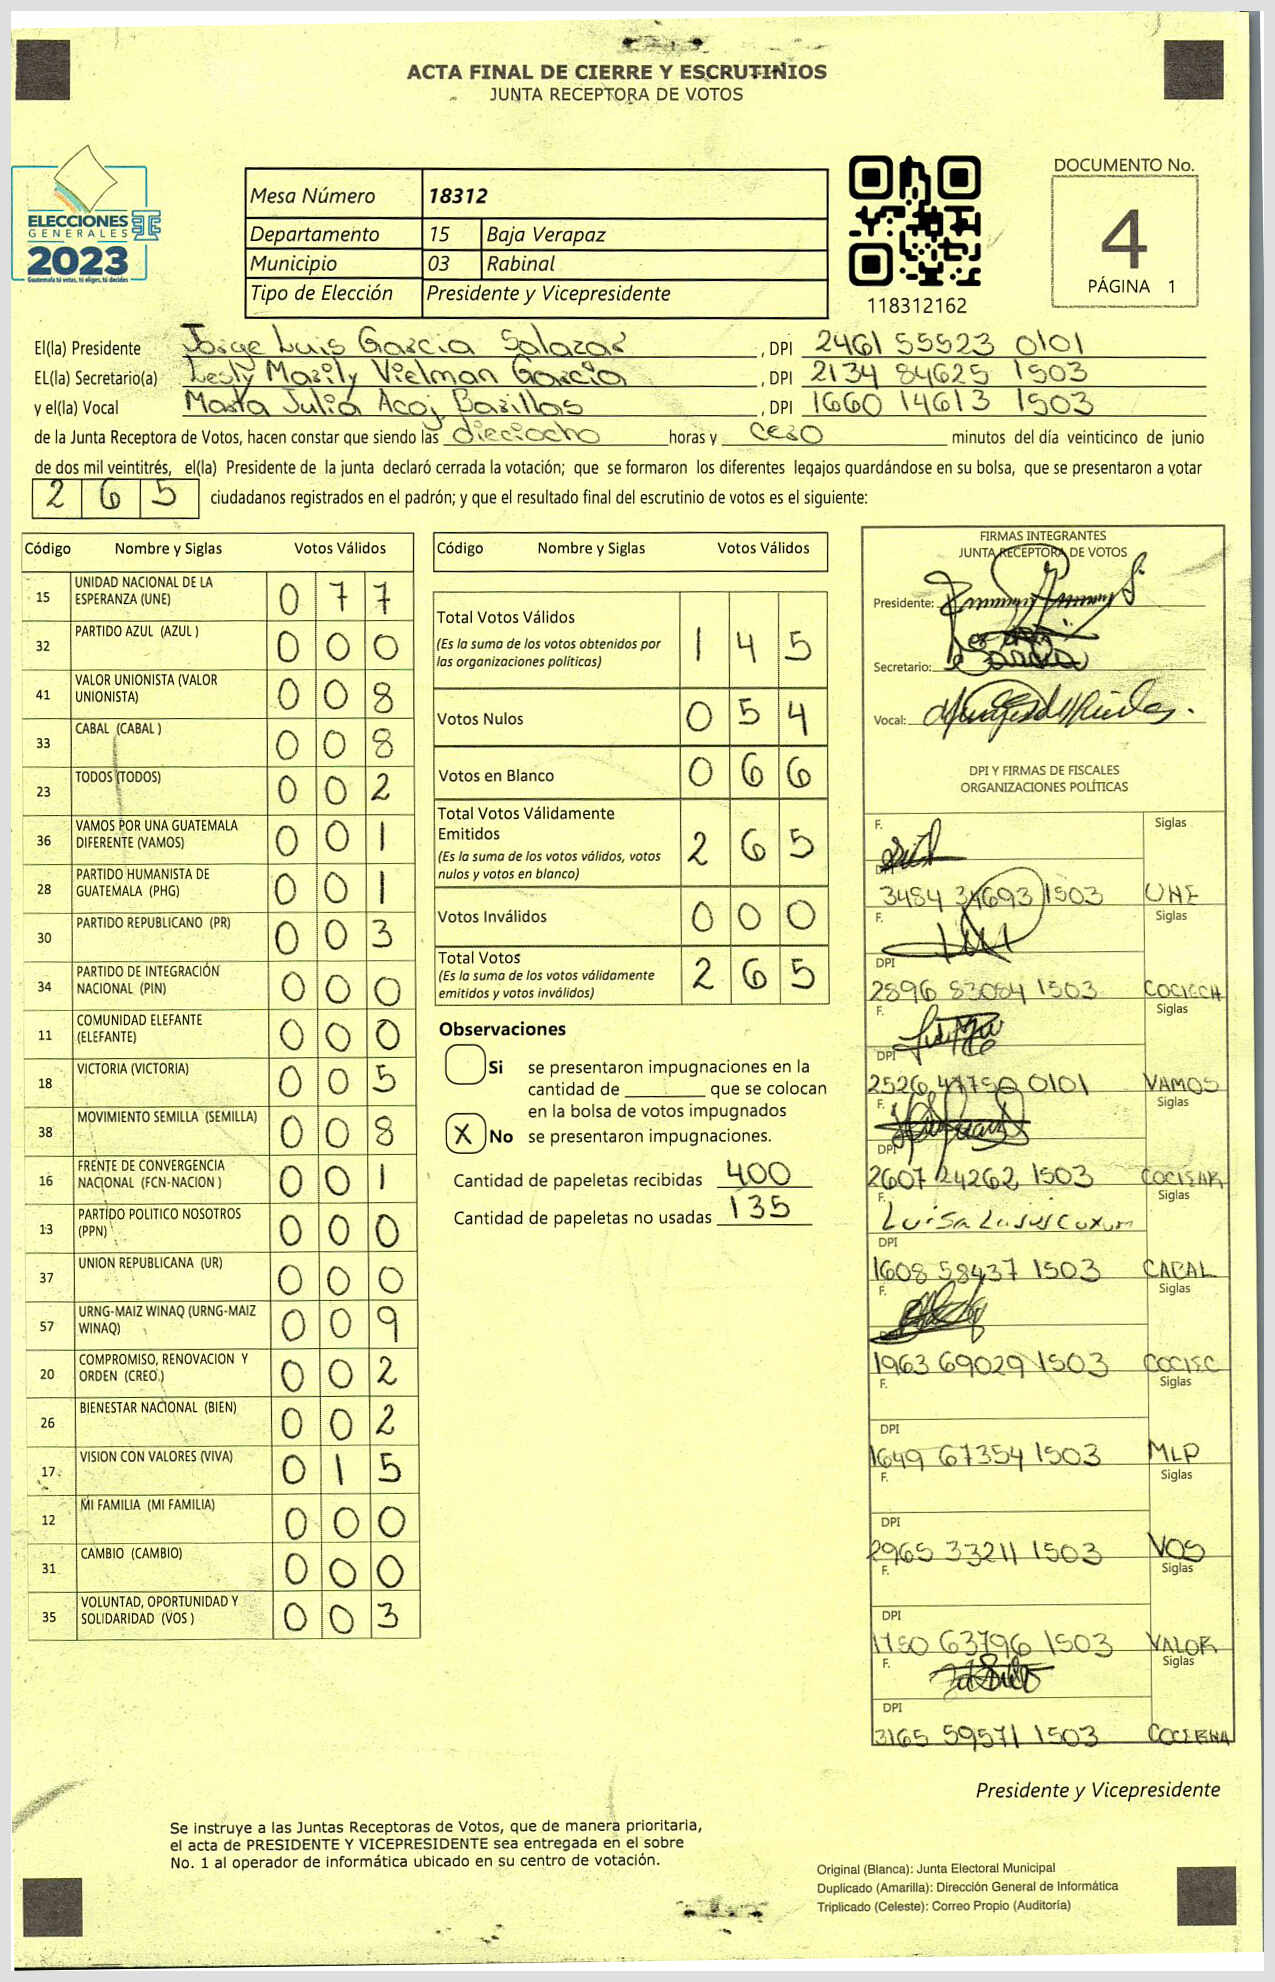 ACTA FINAL DE CIERRE Y ESCRUTINIOS
JUNTA RECEPTORA DE VOTOS
ELECCIONES
GENERALES
2023
Guatemala tú votas, tú eliges, tú decides
Mesa Número 18312
Departamento 15 Baja Verapaz
Municipio 03 Rabinal
Tipo de Elección Presidente y Vicepresidente
118312162
DOCUMENTO No.
4
PÁGINA 1
El(la) Presidente Jorge Luis Garcia Salazar , DPI 2461 55523 0101
EL(la) Secretario(a) Lesly Marily Vielman Garcia , DPI 2134 84625 1503
y el(la) Vocal Marta Julia Acoj Barillas , DPI 1660 14613 1503
de la Junta Receptora de Votos, hacen constar que siendo las dieciocho horas y cero minutos del día veinticinco de junio
de dos mil veintitrés, el(la) Presidente de la junta declaró cerrada la votación; que se formaron los diferentes legajos guardándose en su bolsa, que se presentaron a votar
2 6 5 ciudadanos registrados en el padrón; y que el resultado final del escrutinio de votos es el siguiente:
Código Nombre y Siglas Votos Válidos
15 UNIDAD NACIONAL DE LA ESPERANZA (UNE) 0 7 7
32 PARTIDO AZUL (AZUL ) 0 0 0
41 VALOR UNIONISTA (VALOR UNIONISTA) 0 0 8
33 CABAL (CABAL ) 0 0 8
23 TODOS (TODOS) 0 0 2
36 VAMOS POR UNA GUATEMALA DIFERENTE (VAMOS) 0 0 1
28 PARTIDO HUMANISTA DE GUATEMALA (PHG) 0 0 1
30 PARTIDO REPUBLICANO (PR) 0 0 3
34 PARTIDO DE INTEGRACIÓN NACIONAL (PIN) 0 0 0
11 COMUNIDAD ELEFANTE (ELEFANTE) 0 0 0
18 VICTORIA (VICTORIA) 0 0 5
38 MOVIMIENTO SEMILLA (SEMILLA) 0 0 8
16 FRENTE DE CONVERGENCIA NACIONAL (FCN-NACION ) 0 0 1
13 PARTIDO POLITICO NOSOTROS (PPN) 0 0 0
37 UNION REPUBLICANA (UR) 0 0 0
57 URNG-MAIZ WINAQ (URNG-MAIZ WINAQ) 0 0 9
20 COMPROMISO, RENOVACION Y ORDEN (CREO ) 0 0 2
26 BIENESTAR NACIONAL (BIEN) 0 0 2
17 VISION CON VALORES (VIVA) 0 1 5
12 MI FAMILIA (MI FAMILIA) 0 0 0
31 CAMBIO (CAMBIO) 0 0 0
35 VOLUNTAD, OPORTUNIDAD Y SOLIDARIDAD (VOS ) 0 0 3
Código Nombre y Siglas Votos Válidos
Total Votos Válidos 1 4 5
(Es la suma de los votos obtenidos por
las organizaciones políticas)
Votos Nulos 0 5 4
Votos en Blanco 0 6 6
Total Votos Válidamente
Emitidos 2 6 5
(Es la suma de los votos válidos, votos
nulos y votos en blanco)
Votos Inválidos 0 0 0
Total Votos 2 6 5
(Es la suma de los votos válidamente
emitidos y votos inválidos)
Observaciones
Si se presentaron impugnaciones en la
cantidad de ________ que se colocan
en la bolsa de votos impugnados
X No se presentaron impugnaciones.
Cantidad de papeletas recibidas 400
Cantidad de papeletas no usadas 135
FIRMAS INTEGRANTES
JUNTA RECEPTORA DE VOTOS
Presidente:
Secretario:
Vocal:
DPI Y FIRMAS DE FISCALES
ORGANIZACIONES POLÍTICAS
F. Siglas
DPI
3484 34693 1503 UNE
F. Siglas
DPI
2896 83084 1503 COCIECH
F. Siglas
DPI
2526 47750 0101 VAMOS
F. Siglas
DPI
2607 24262 1503
F. Siglas
Luisa
DPI
1608 58437 1503 CABAL
F. Siglas
DPI
1963 69029 1503 COCIEC
F. Siglas
DPI
1649 67354 1503 MLP
F. Siglas
DPI
2965 33211 1503 VOS
F. Siglas
DPI
1750 63796 1503 VALOR
F. Siglas
DPI
3165 59571 1503
Presidente y Vicepresidente
Se instruye a las Juntas Receptoras de Votos, que de manera prioritaria,
el acta de PRESIDENTE Y VICEPRESIDENTE sea entregada en el sobre
No. 1 al operador de informática ubicado en su centro de votación.
Original (Blanca): Junta Electoral Municipal
Duplicado (Amarilla): Dirección General de Informática
Triplicado (Celeste): Correo Propio (Auditoría)